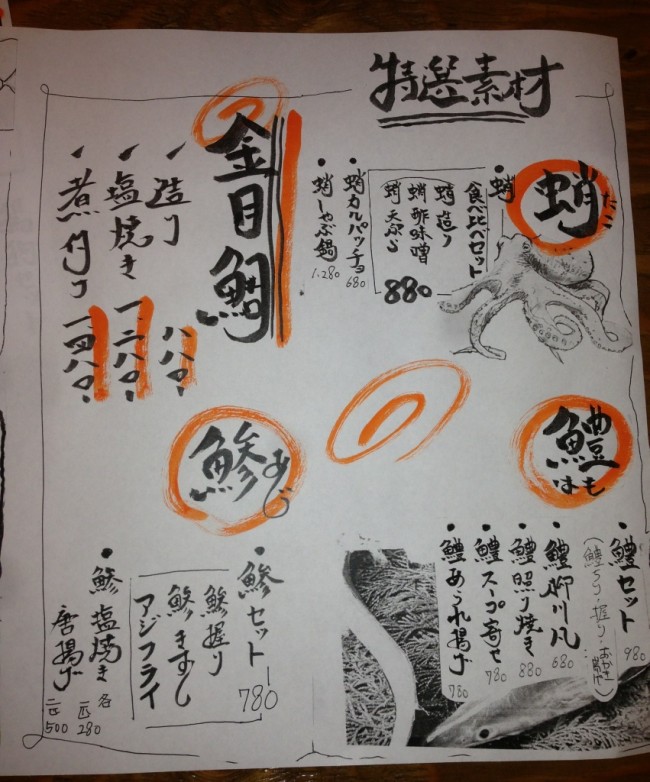 特選素材
蛸
たこ
・蛸
食べ比べセット
蛸造り
蛸酢味噌
蛸天ぷら
880
・蛸カルパッチョ
680
・蛸しゃぶ鍋
1.280
金目鯛
造り
八八〇
塩焼き
一、二八〇
煮付け
一、四八〇
鱧
はも
・鱧セット
980
(鱧ちり・握り・あられ揚げ)
・鱧柳川風
680
・鱧照り焼き
880
・鱧スープ寄せ
780
・鱧あられ揚げ
780
鯵
あじ
・鯵セット
780
鯵握り
鯵きずし
アジフライ
・鯵塩焼き
各一匹280
唐揚げ
二匹500